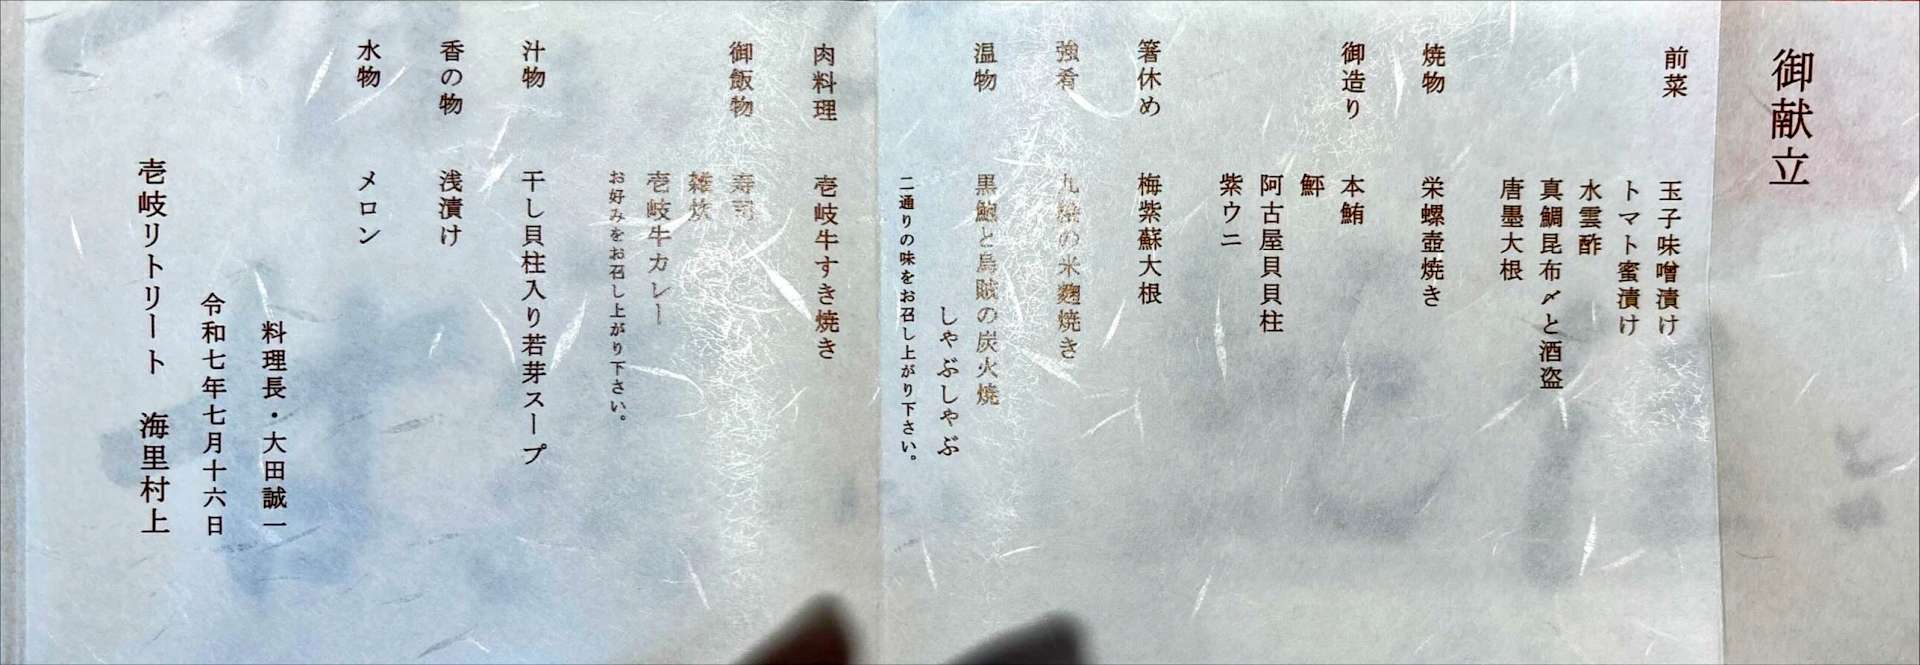 御献立
前菜 玉子味噌漬け
トマト蜜漬け
水雲酢
真鯛昆布〆と酒盗
唐墨大根
焼物 栄螺壺焼き
御造り 本鮪
鮃
阿古屋貝貝柱
紫ウニ
箸休め 梅紫蘇大根
強肴 九繪の米麹焼き
温物 黒鮑と烏賊の炭火焼
しゃぶしゃぶ
二通りの味をお召し上がり下さい。
肉料理 壱岐牛すき焼き
御飯物 寿司
雑炊
壱岐牛カレー
お好みをお召し上がり下さい。
汁物 干し貝柱入り若芽スープ
香の物 浅漬け
水物 メロン
料理長・大田誠一
令和七年七月十六日
壱岐リトリート 海里村上